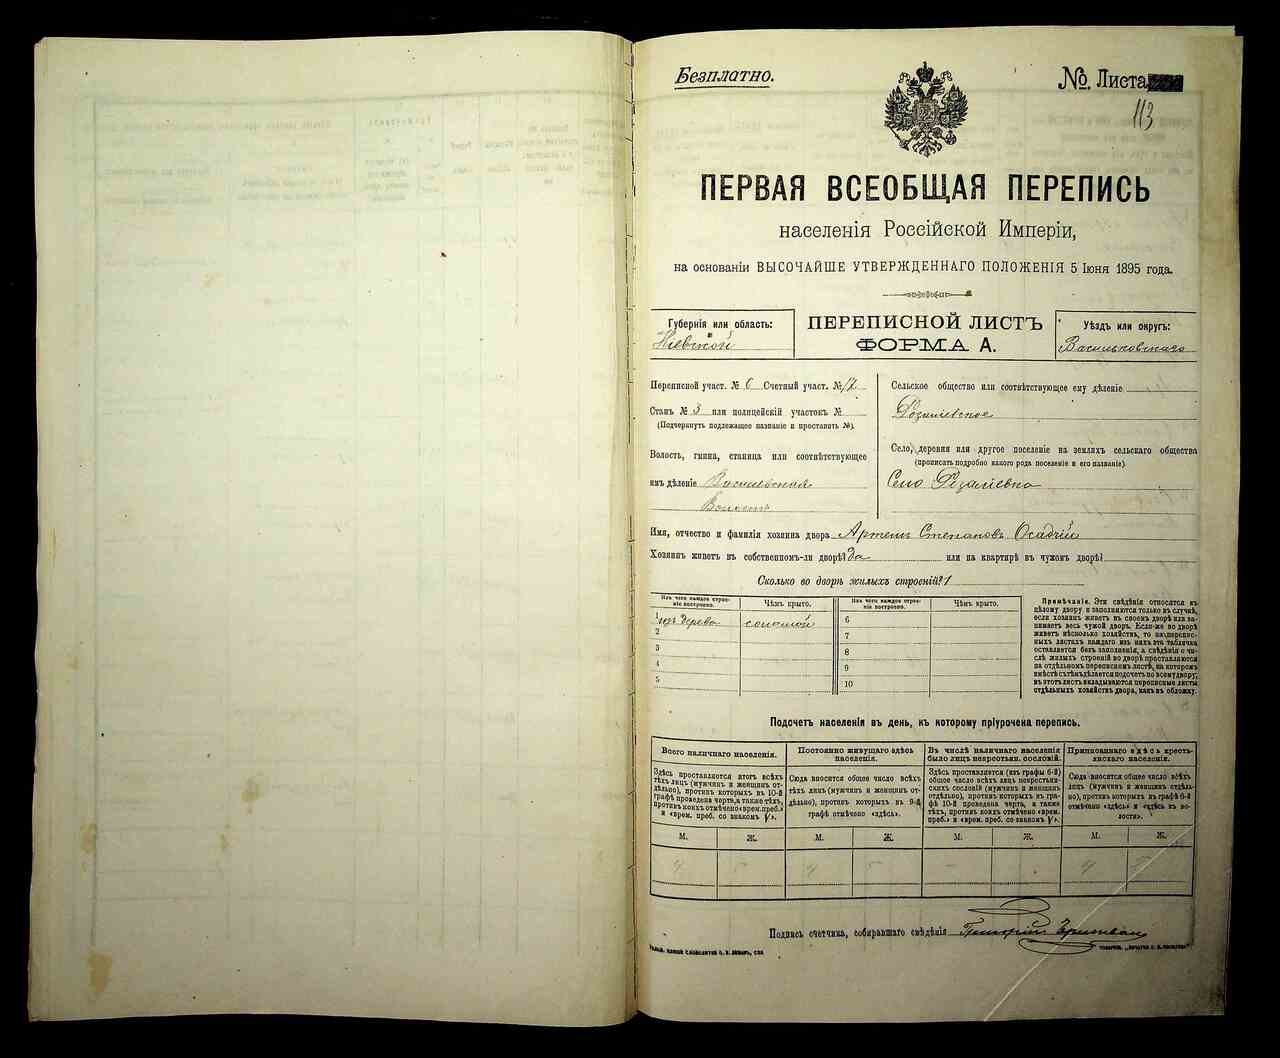 Безплатно.
№ Листа
113
ПЕРВАЯ ВСЕОБЩАЯ ПЕРЕПИСЬ
населенія Россійской Имперіи,
на основаніи ВЫСОЧАЙШЕ УТВЕРЖДЕННАГО ПОЛОЖЕНІЯ 5 Іюня 1895 года.
Губернія или область:
Кіевской
ПЕРЕПИСНОЙ ЛИСТЪ
ФОРМА А.
Уѣздъ или округъ:
Васильковскаго
Переписной участ. № 6 Счетный участ. № 17
Станъ № 3 или полицейскій участокъ №
(Подчеркнуть подлежащее названіе и проставить №).
Волость, гмина, станица или соотвѣтствующее
имъ дѣленіе
Волость
Сельское общество или соотвѣтствующее ему дѣленіе
Розаліевское
Село, деревня или другое поселеніе на земляхъ сельскаго общества
(прописать подробно какого рода поселеніе и его названіе)
Село Розаліевка
Имя, отчество и фамилія хозяина двора Артемъ Степановъ Осадчій
Хозяинъ живетъ въ собственномъ-ли дворѣ? Да или на квартирѣ въ чужомъ дворѣ?
Сколько во дворѣ жилыхъ строеній? 1
Изъ чего каждое строеніе построено.
Чѣмъ крыто.
Изъ чего каждое строеніе построено.
Чѣмъ крыто.
1 изъ дерева соломой
2
3
4
5
6
7
8
9
10
Примѣчаніе. Эти свѣдѣнія относятся къ
цѣлому двору и заполняются только въ случаѣ,
если хозяинъ живетъ въ своемъ дворѣ или занимаетъ
весь чужой дворъ. Если-же во дворѣ
живетъ нѣсколько хозяйствъ, то на переписныхъ
листахъ каждаго изъ нихъ эта табличка
оставляется безъ заполненія, а свѣдѣнія о числѣ
жилыхъ строеній во дворѣ проставляются
на отдѣльномъ переписномъ листѣ, на которомъ
вмѣстѣ съ тѣмъ дѣлается подсчетъ по всему двору;
въ этотъ листъ вкладываются переписные листы
отдѣльныхъ хозяйствъ двора, какъ въ обложку.
Подсчетъ населенія въ день, къ которому пріурочена перепись.
Всего наличнаго населенія.
Здѣсь проставляется итогъ всѣхъ
тѣхъ лицъ (мужчинъ и женщинъ отдѣльно),
противъ которыхъ въ 10-й
графѣ проведена черта, а также тѣхъ,
противъ коихъ отмѣчено «врем. преб.»
и «врем. преб. со знакомъ V».
Постоянно живущаго здѣсь
населенія.
Сюда вносится общее число всѣхъ
тѣхъ лицъ (мужчинъ и женщинъ отдѣльно),
противъ которыхъ въ 9-й
графѣ отмѣчено «здѣсь».
Въ числѣ наличнаго населенія
было лицъ некрестьян. сословій.
Здѣсь проставляется (изъ графы 6-й)
общее число лицъ некрестьянскихъ
сословій (мужчинъ и женщинъ
отдѣльно), противъ которыхъ въ графѣ
10-й проведена черта, а также
тѣхъ, противъ коихъ отмѣчено «врем.
преб.» и «врем. преб. со знакомъ V».
Приписаннаго здѣсь крестьянскаго
населенія.
Сюда вносится общее число всѣхъ
лицъ (мужчинъ и женщинъ отдѣльно),
противъ которыхъ въ графѣ 8-й
отмѣчено «здѣсь» и «здѣсь въ волости».
М. Ж. М. Ж. М. Ж. М. Ж.
4 5 4 5 - - 4 5
Подпись счетчика, собиравшаго свѣдѣнія Григорій